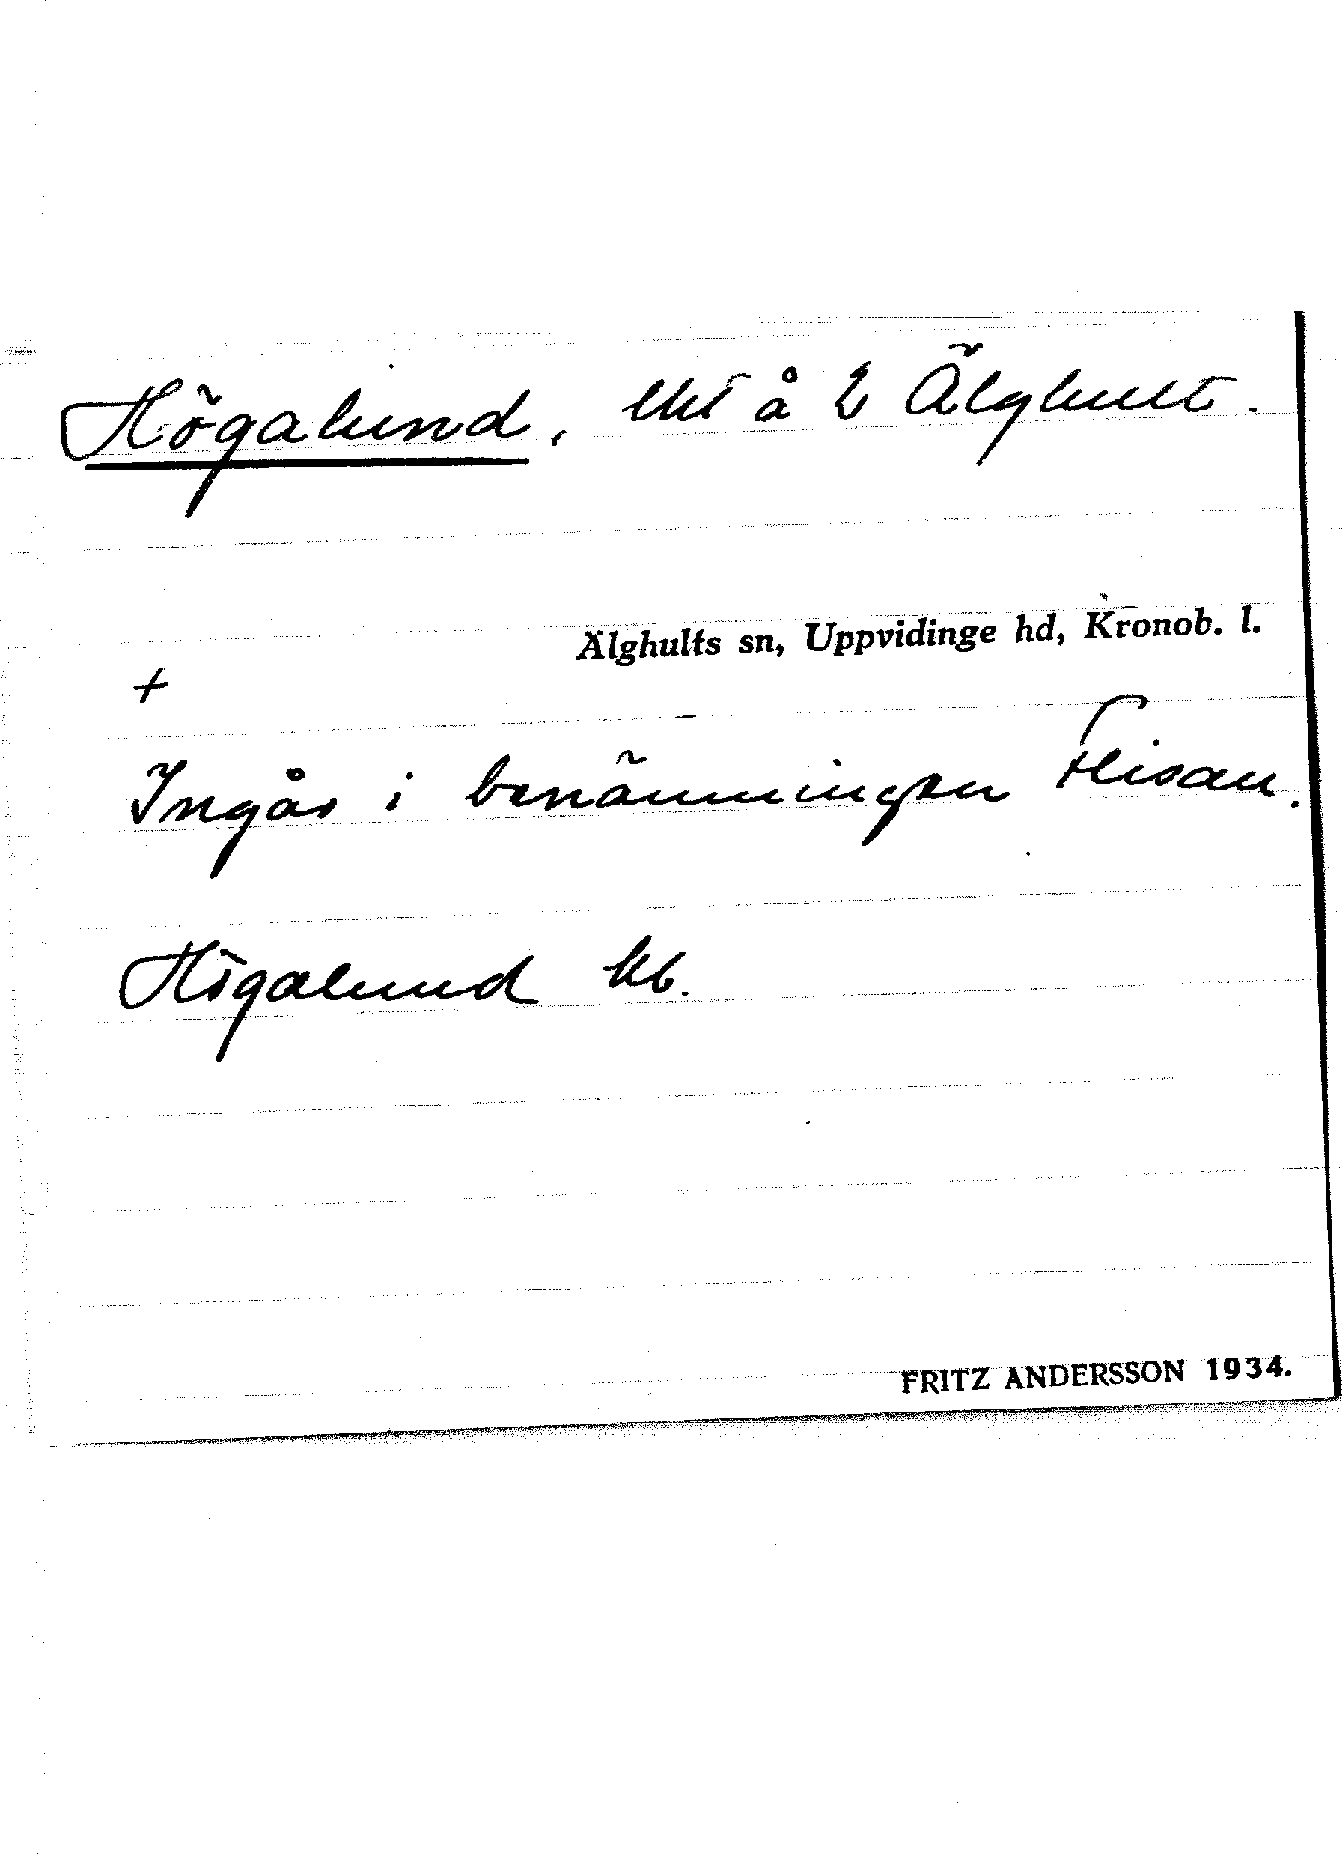 Högalund, lht å L Älghult.
Älghults sn, Uppvidinge hd, Kronob. l.
+
Ingår i benämningen Flisan.
Högalund kb.
FRITZ ANDERSSON 1934.